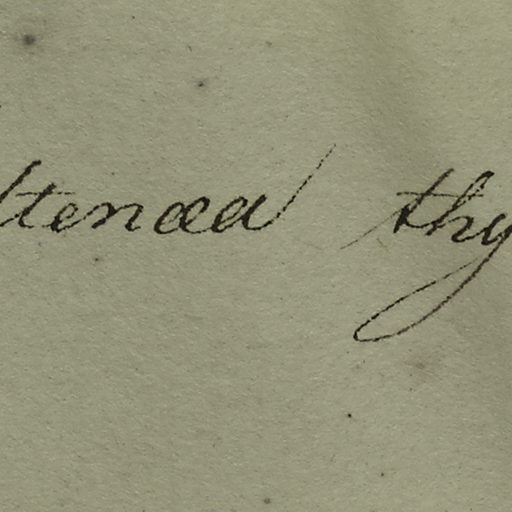 ltenæa thy